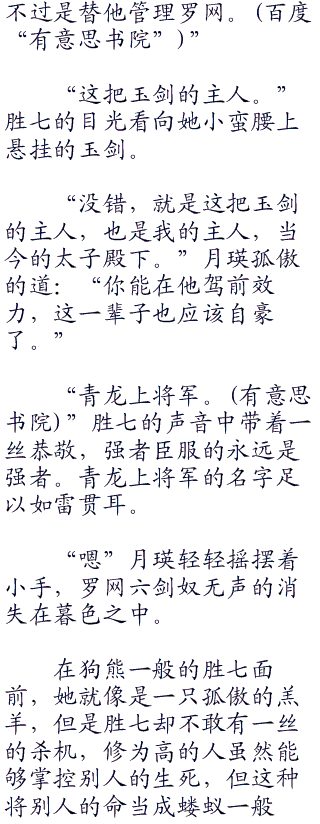 不过是替他管理罗网。(百度
“有意思书院”)”
“这把玉剑的主人。”
胜七的目光看向她小蛮腰上
悬挂的玉剑。
“没错，就是这把玉剑
的主人，也是我的主人，当
今的太子殿下。”月瑛孤傲
的道：“你能在他驾前效
力，这一辈子也应该自豪
了。”
“青龙上将军。(有意思
书院)”胜七的声音中带着一
丝恭敬，强者臣服的永远是
强者。青龙上将军的名字足
以如雷贯耳。
“嗯”月瑛轻轻摇摆着
小手，罗网六剑奴无声的消
失在暮色之中。
在狗熊一般的胜七面
前，她就像是一只孤傲的羔
羊，但是胜七却不敢有一丝
的杀机，修为高的人虽然能
够掌控别人的生死，但这种
将别人的命当成蝼蚁一般